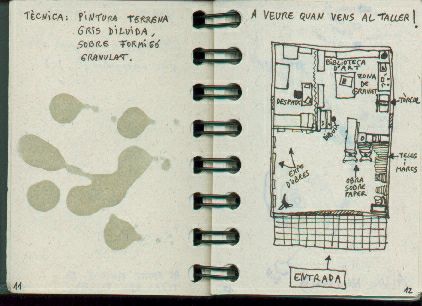 TÈCNICA: PINTURA TERRENA
GRIS DILUÏDA,
SOBRE FORMIGÓ
GRANULAT.
11
A VEURE QUAN VENS AL TALLER!
BIBLIOTECA
D'ART
ZONA
DE
GRAVAT
DESPATX
TÒRCUL
TELES
I
MARCS
EXPO
D'OBRES
OBRA
SOBRE
PAPER
ENTRADA
12